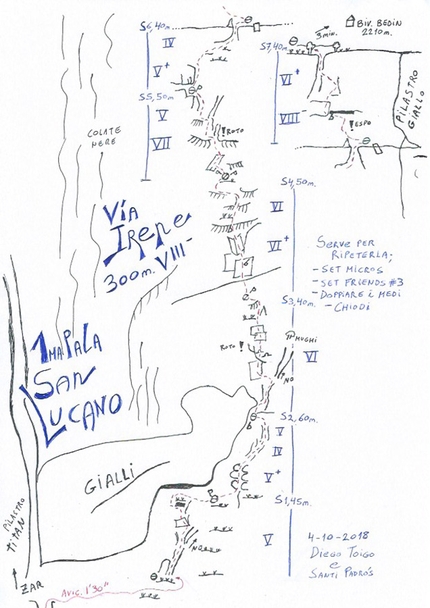 S6,40m.
IV
V+
S5,50m
V
VII
!ROTO
COLATE
NERE
S7,40m.
3min.
BIV. BEDIN
2210m.
VI+
VIII
!ESPO
PILASTRO
GIALLO
VÍA
IRENE
300m. VIII-
S4,50m.
VI
VI+
S3,40m.
SERVE PER
RIPETERLA;
- SET MICROS
- SET FRIENDS #3
- DOPPIARE i MEDI
- CHIODI
1MA PALA
SAN
LUCANO
MUGHI
ROTO!
NO
VI
S2,60m.
V
IV
V+
S1,45m.
V
GIALLI
PILASTRO
TITAN
ZAR
AVIC. 1'30"
4-10-2018
DIEGO TOIGO
e
SANTI PADRÓS